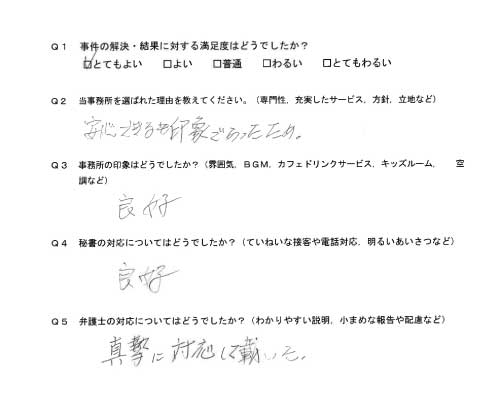 Q1 事件の解決・結果に対する満足度はどうでしたか?
☑とてもよい □よい □普通 □わるい □とてもわるい
Q2 当事務所を選ばれた理由を教えてください。(専門性，充実したサービス，方針，立地など)
安心できる印象であったため。
Q3 事務所の印象はどうでしたか?(雰囲気，BGM，カフェドリンクサービス，キッズルーム，空
調など)
良好
Q4 秘書の対応についてはどうでしたか?(ていねいな接客や電話対応，明るいあいさつなど)
良好
Q5 弁護士の対応についてはどうでしたか?(わかりやすい説明，小まめな報告や配慮など)
真摯に対応して戴いた。